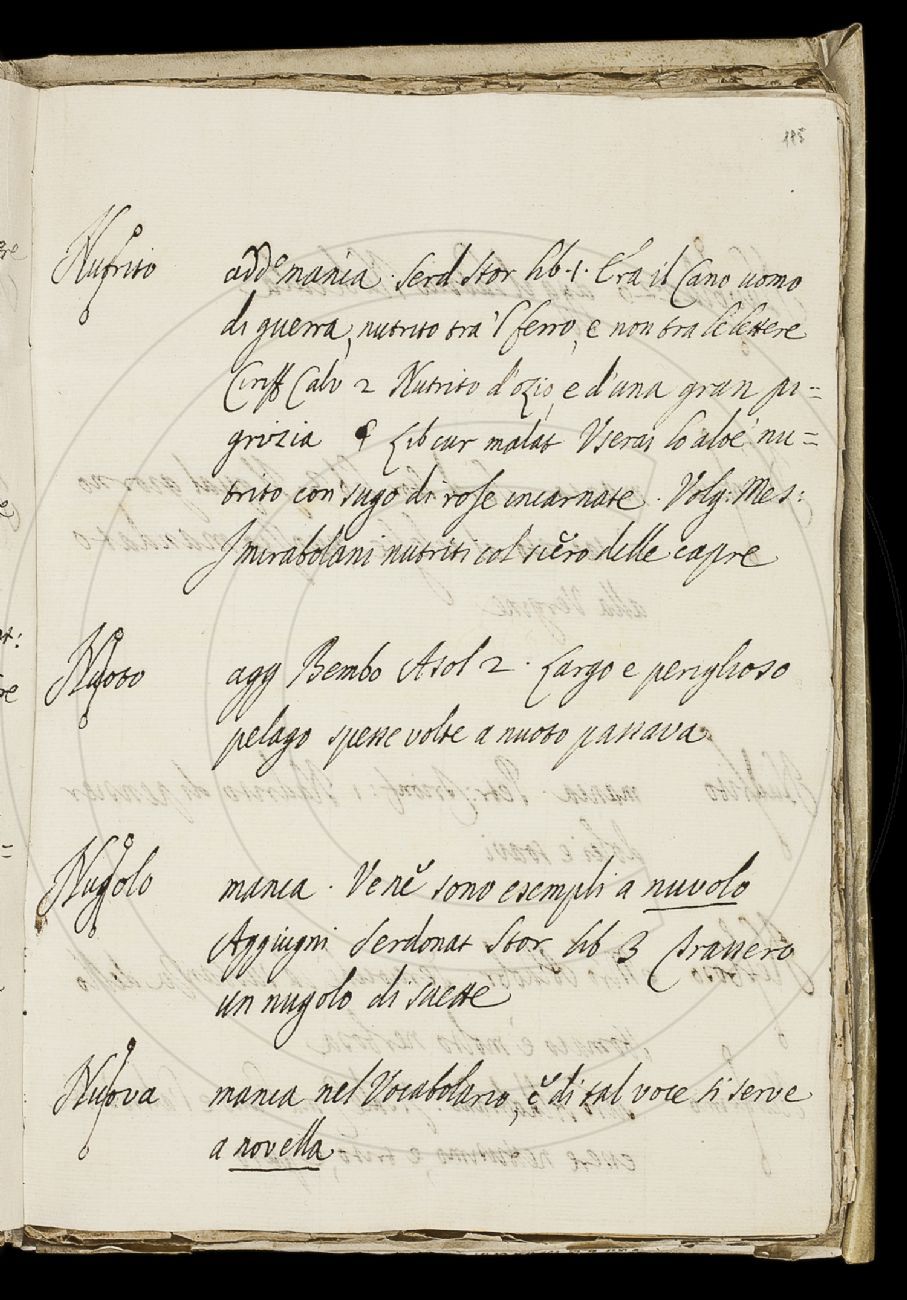 Nutrito add.º manca. Serd Stor lib. 1. Era il Cano uomo
di guerra, nutrito tra 'l ferro, e non tra le lettere
Ciriff Calv 2 Nutrito d'ozio, e d'una gran pi=
grizia & Lib cur malat Userai lo aloè nu=
trito con sugo di rose incarnate. Volg: Mes:
I mirabolani nutriti col siero delle capre
Nuoto agg Bembo Asol 2. Largo e periglioso
pelago spesse volte a nuoto passava
Nugolo manca. Ven'è sono esempli a nuvolo
Aggiugni Serdonat Stor lib 3 Trassero
un nugolo di saette
Nuova manca nel Vocabolario, e di tal voce si serve
a novella